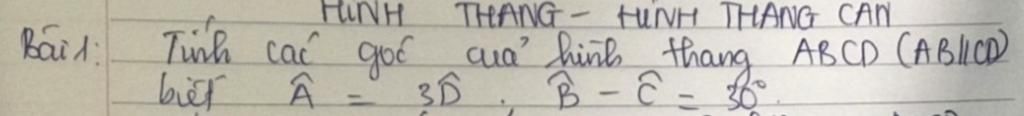 HÌNH THANG - HÌNH THANG CÂN
Bài 1: Tính các góc của hình thang ABCD (AB//CD)
biết Â = 3D̂. B̂ - Ĉ = 30°.